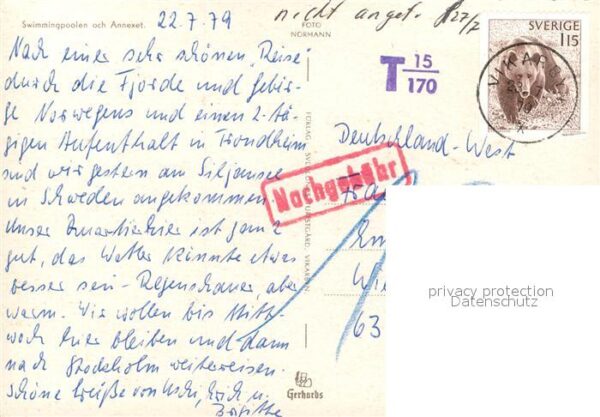 Swimmingpoolen och Annexet.
22.7.79
nicht
FOTO
NORMANN
SVERIGE
115
T 15/170
VIKARBYN
Nach einer sehr schönen Reise
durch die Fjorde und Gebir-
ge Norwegens und einen 2-tä-
gigen Aufenthalt in Trondheim
sind wir gestern am Siljansee
in Schweden angekommen.
Unser Quartier hier ist ganz
gut, das Wetter könnte etwas
besser sein - Regenschauer, aber
warm. Wir wollen bis Mitt-
woch hier bleiben und dann
nach Stockholm weiterreisen.
Schöne Grüße von Uschi, Erich u.
Brigitte
Deutschland-West
Nachgebühr
63
privacy protection
Datenschutz
Gerhards